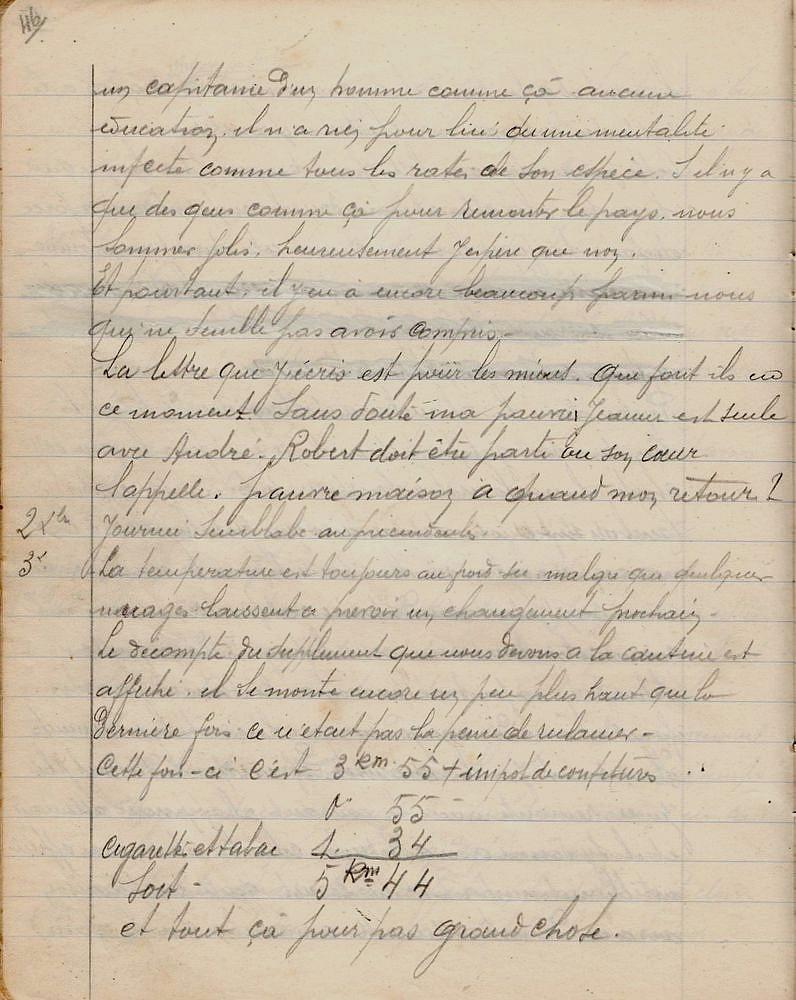 46
un capitaine d'un homme comme ça aucune
education, il n'a rien pour lui d'une mentalité
infecte comme tous les ratés de son espèce. S'il n'y a
que des gens comme ça pour remonter le pays. nous
sommes jolis. heureusement J'espère que non.
Et pourtant. il y en a encore beaucoup parmi nous
qui ne semble pas avoir compris.-
La lettre que J'écris est pour les miens. Que font ils en
ce moment Sans doute ma pauvre Jeanne est seule
avec André. Robert doit être parti où son cœur
l'appelle. pauvre maison a quand mon retour ?
2 Journée Semblable au précedente.
3 La temperature est toujours au froid sec malgre que quelques
nuages laissent a prevoir un changement prochain -
Le décompte du suplement que nous devons a la cantine est
affiché. il se monte encore un peu plus haut que la
dernière fois ce n'etait pas la peine de reclamer -
Cette fois-ci c'est 3 km 55 + impot de confitures
0 55
cigarettes et tabac 1. 34
Soit - 5 km 44
et tout ça pour pas grand chose.